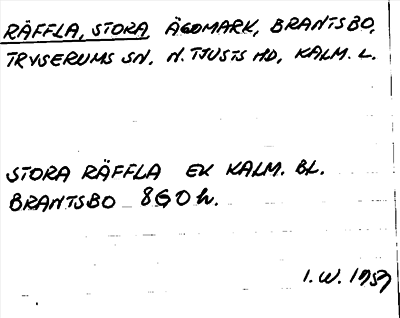 RÄFFLA, STORA ÄGOMARK, BRANTSBO,
TRYSERUMS SN, N. TJUSTS HD, KALM. L.
STORA RÄFFLA EK KALM. BL.
BRANTSBO 8G0h.
I.W.